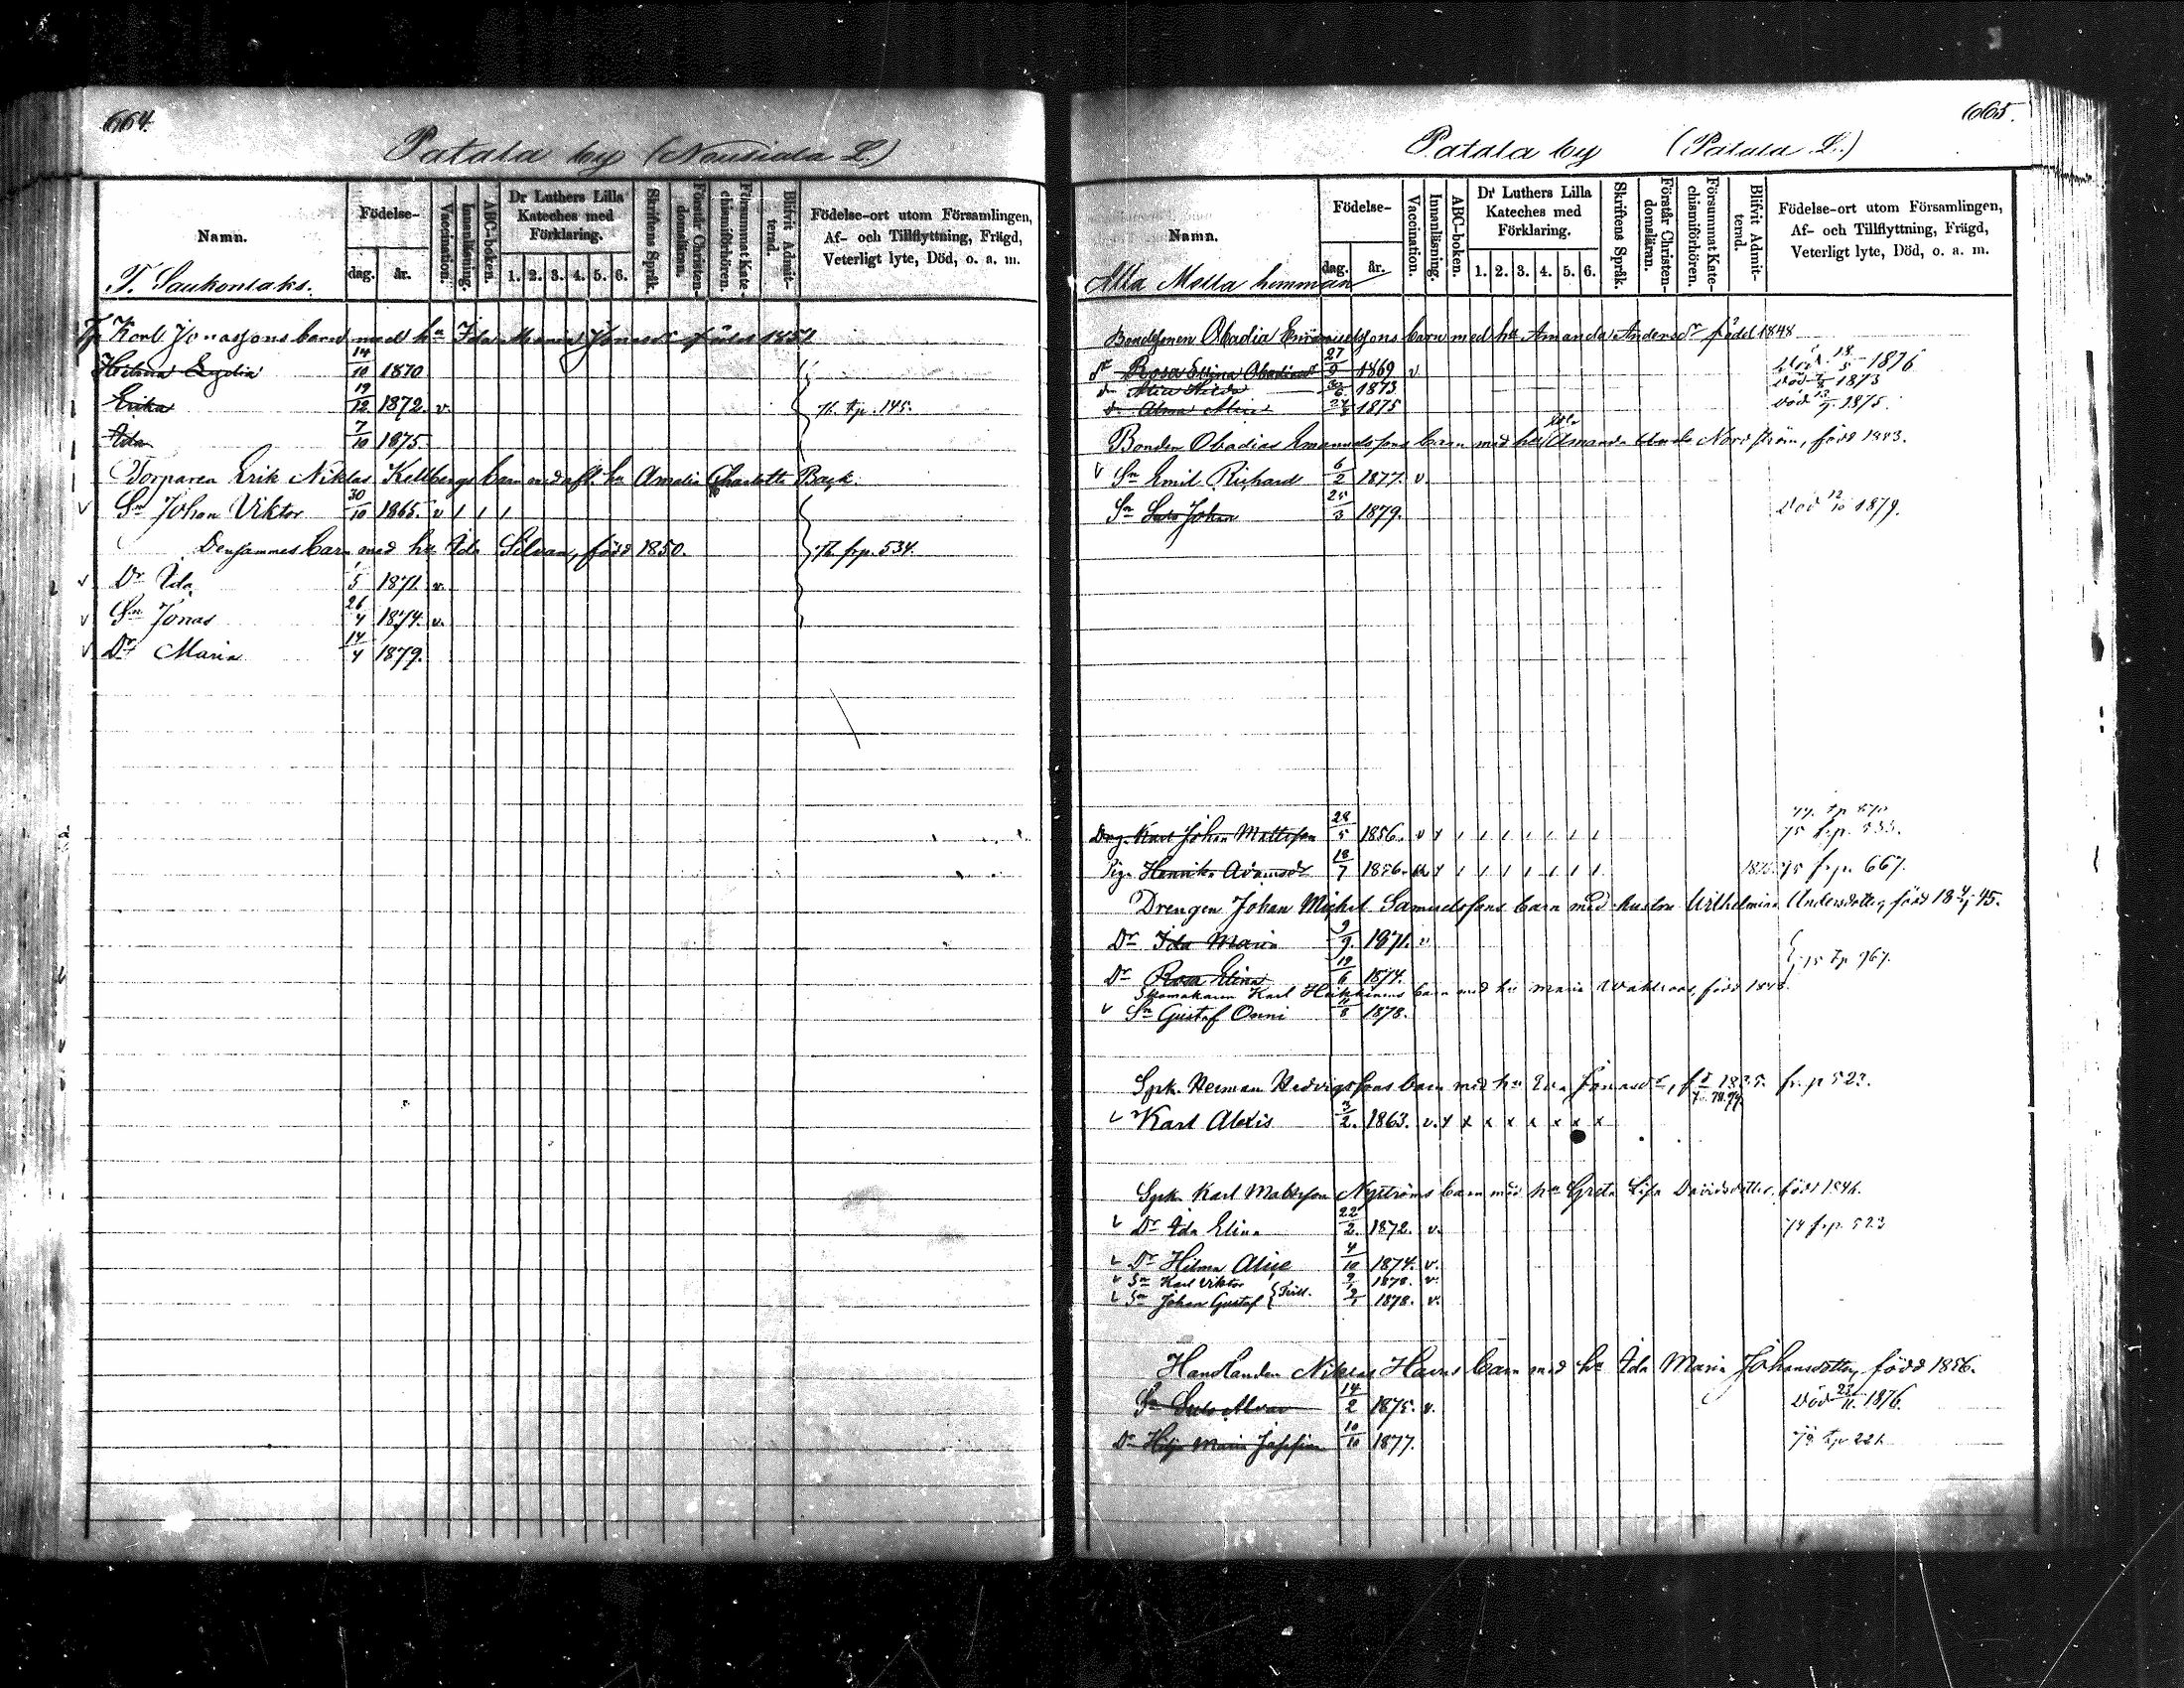 664.
Patala by (Nousiala L.)
Namn.
Födelse-
dag.
år.
Vaccination.
Innanläsning.
ABC-boken.
Dr Luthers Lilla Kateches med Förklaring.
1. 2. 3. 4. 5. 6.
Skriftens Språk.
Förstår Christendomsläran.
Försummat Katechismiförhören.
Blifvit Admitterad.
Födelse-ort utom Församlingen, Af- och Tillflyttning, Frägd, Veterligt lyte, Död, o. a. m.
T. Saukonlaks.
Tp. Karl Jonassons barn med hu Ida Maria Jonasdr född 1851
14/10 1870
Erika 19/12 1872. v. 76 tp. 145.
Ida 7/10 1875
Torparen Erik Niklas Kellbergs barn med afl. hu Amalia Charlotta Back.
v Sn Johan Viktor 30/10 1865. v / / /
Densammes barn med hu Ida Silvan, född 1850. 76 frp. 534.
v Dr Ida 1/5 1871. v.
v Sn Jonas 26/4 1874. v.
v Dr Maria 14/4 1879.
665.
Patala by (Patala L.)
Namn.
Födelse-
dag.
år.
Vaccination.
Innanläsning.
ABC-boken.
Dr Luthers Lilla Kateches med Förklaring.
1. 2. 3. 4. 5. 6.
Skriftens Språk.
Förstår Christendomsläran.
Försummat Katechismiförhören.
Blifvit Admitterad.
Födelse-ort utom Församlingen, Af- och Tillflyttning, Frägd, Veterligt lyte, Död, o. a. m.
Alla Mella hemman
Bondsonen Obadia Emanuelssons barn med hu Amanda Andersdr född 1848
dr Rosa Elina Obadiasdr 27/9 1869 v 18/5 1876
dr Alice Hilda 30/6 1873 död 1873
dr Alma Alina 1875 död 1875.
Bonden Obadias Emanuelssons barn med hu Amanda Nordström, född 1843.
v Sn Emil Richard 6/2 1877. v.
Sn Johan 25/3 1879. Död 12/10 1879.
77. tp 670
Drg. Karl Johan Mattsson 28/5 1856. v y / / / / / / / 75 frp. 533.
Pig. Henrika Adamsdr 18/7 1856. y / / / / / / / 75 frp. 667.
Drengen Johan Mickel Samuelssons barn med hustru Wilhelmina Andersdotter, född 18 4/1 45.
Dr Ida Maria 9/9. 1871. v
75 tp 767.
Dr Rosa Elina 19/6 1874.
Skomakaren Karl Heikkinens barn med hu Maria Wahlroos, född 1848.
v Sn Gustaf Onni 11/8 1878.
Spk. Herman Hedvigssons barn med hu Eva Jonasdr, fd 1825. fr. p 523.
v Karl Alexis 3/2. 1863. v. y x x x x x x x
Spk. Karl Mattsson Nyströms barn med hu Greta Lisa Davidsdotter, född 1846.
v Dr Ida Elina 22/2. 1872. v. 74 frp. 523
v Dr Hilma Alise 4/10 1874. v.
v Sn Karl Viktor 9/1 1878. v.
v Sn Johan Gustaf Tvill. 9/1 1878. v.
Handlanden Niklas Havus barn med hu Ida Maria Johansdotter, född 1856.
Sn Alvar 14/2 1875. v. Död 23/11. 1876.
Dr Hilja Maria Josefina 10/10 1877. 78 tp 221.